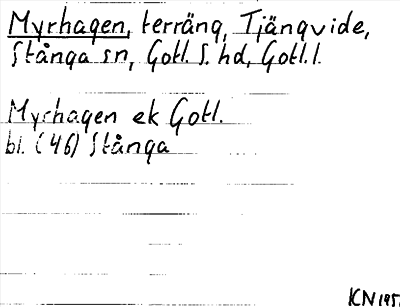 Myrhagen, terräng, Tjängvide,
Stånga sn, Gotl. S. hd, Gotl. l.
Myrhagen ek Gotl.
bl. (46) Stånga
KN 195